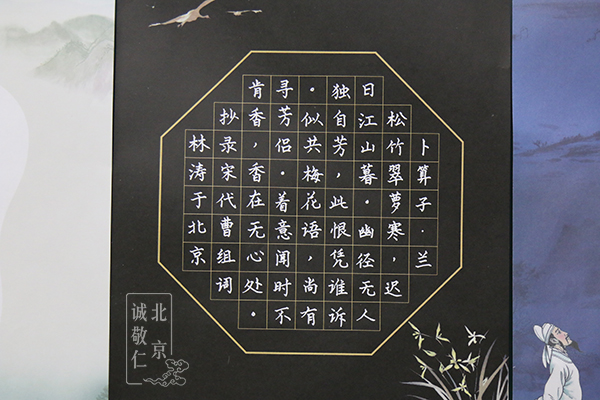 卜算子·兰
松竹翠萝寒，迟
日江山暮。幽径无人
独自芳，此恨凭谁诉
。似共梅花语，尚有
寻芳侣。着意闻时不
肯香，香在无心处。
抄录宋代曹组词
林涛于北京
北京
诚敬仁